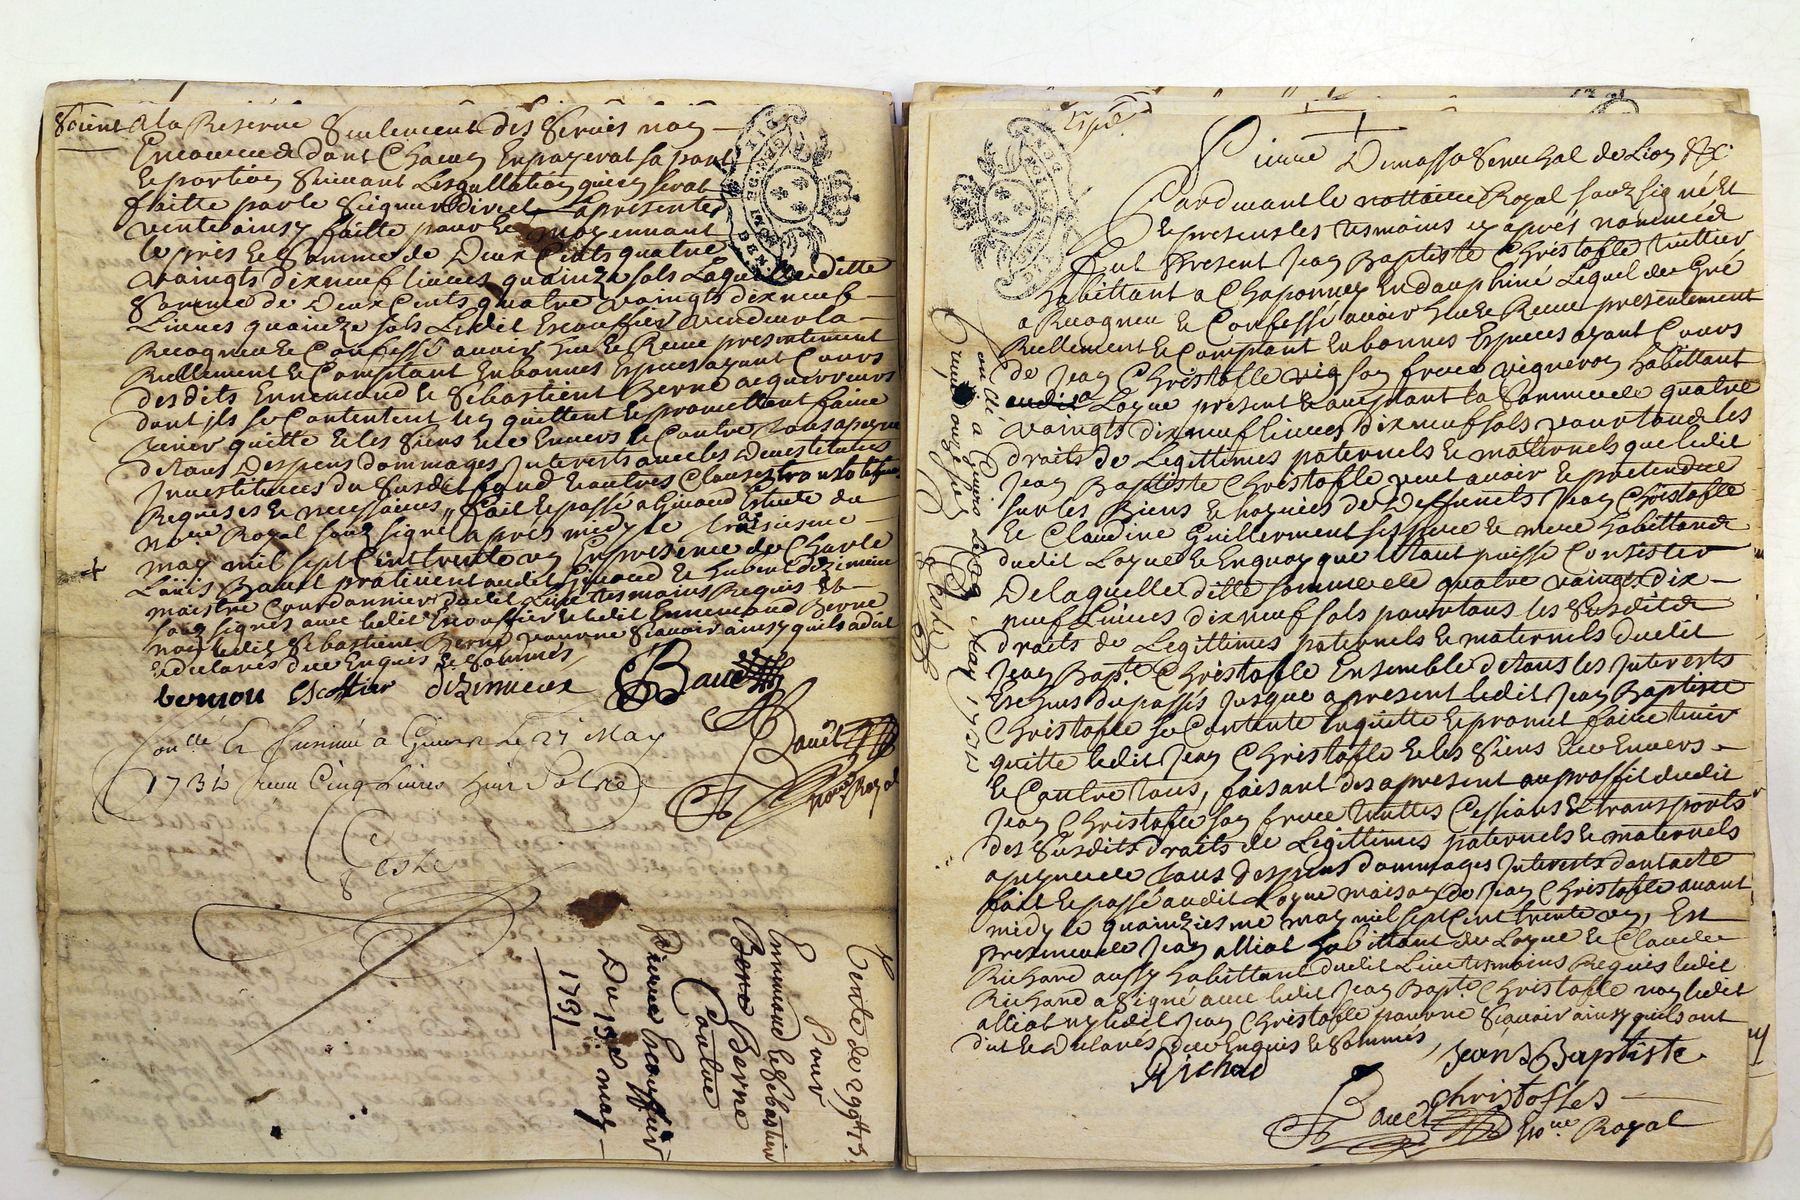 Soient A la Reserve Seulement des Servis non
Encourued dont Chacun En payerat sa part
Et portion Suivant Lesgullation quien serat
faitte par le Seigneur direct La presente
vente ainsy faitte pour Et moyennant
le pris Et Somme de Deux Cents quatre
vaingts dixneuf livres quainze sols Laquelle ditte
Somme de Deux Cents quatre vaingts dixneuf
Livres quainze sols Ledit Escoffier vendeur la
Recogneu Et Confessé avoir heu Et Receu presentement
Reellement Et Comptant En bonnes Especes ayant Cours
desdits Ennemond Et Sebastient Berne acquerreurs
dont jls se Contentent les quittent Et promettent faire
tenir quitte Et les Siens Et Envers Et Contre tous a peyne
de tous Despens dommages Jnterests avec les Devestitures
Jnvestitures du Susdit fond Et autres Clauses translatifues
Requises Et necessaires, fait Et passé a Givord Estude du
no.re Royal souz signé apres midy le troisiesme
may mil sept Cent trente un En presence de Charle
Loüis Bauet pratitient audit Givord Et hubert dizimieu
maistre Courdonnier dudit Lieu tesmoins Requis Et
souz signés avec ledit Escouffier Et ledit Ennemond Berne
non ledit Sebastient Berne pour ne Scavoir ainsy quils a dit
Et declarés de Enquis Et Sommés
bernou Escoffier dizimieux Bauet
Bauet
no.re Royal
Con.lle Et Jnsinué a Givors Le 27 May
1731 Receu Cinq Livres huit sols
Geste
Vente de 299tt 15s
Pour
Ennemond Et Sebastien
Berne Berne
Contre
Pierre Escouffier
Du 13e may
1731
Exped.
Pierre Dumas Senechal de Lion &c.
Pardevant le nottaire Royal souz signé Et
Et presents les tesmoins cy apres nommed
fut Present Jean Baptiste Christofle
habittant a Chaponney En dauphiné Lequel de Gré
a Recogneu Et Confessé avoir heu Et Receu presentement
Reellement Et Comptant En bonnes Especes ayant Cours
de Jean Christofle son frere vigneron habittant
a Loyre present Et acceptant la Somme de quatre
vaingts dixneuf livres dixneuf sols pour tous les
droits de Legittimes paternels Et maternels que ledit
Jean Baptiste Christofle peut avoir Et pretendre
sur les Biens Et hoyries de Deffunts Jean Christofle
Et Claudine Guillerment ses pere Et mere habittand
dudit Loyre Et En quoy que Le tout puisse Consister
De laquelle ditte somme de quatre vaingts dix
neuf Livres dixneuf sols pour tous les Susdits
droits de Legittimes paternels Et maternels dudit
Jean Bapt.e Christofle Ensemble de tous les Jnterests
Escheus du passés Jusque a present ledit Jean Baptiste
Christofle se Contente En quitte Et promet faire tenir
quitte ledit Jean Christofle Et les Siens Envers
Et Contre tous, faisant des a present au proffit dudit
Jean Christofle son frere touttes Cessions Et transports
des Susdits droits de Legittimes paternels Et maternels
a peyne de tous Despens dommages Jnterests dont acte
fait Et passé audit Loyre maison de Jean Christofle avant
midy le quainziesme may mil sept Cent trente un, En
presence de Jean alliot habittant de Loyre Et Claude
Richard aussy habittant dudit Lieu tesmoins Requis ledit
Richard a Signé avec ledit Jean Bapt.e Christofle non ledit
alliot ny ledit Jean Christofle pour ne Scavoir ainsy quils ont
dit Et declarés de Enquis Et Sommés,
Richad Jeans Baptiste
christofles
Bauet no.re Royal
Con.llé a Givors Le 29 May 1731
Receu douze sols
Geste